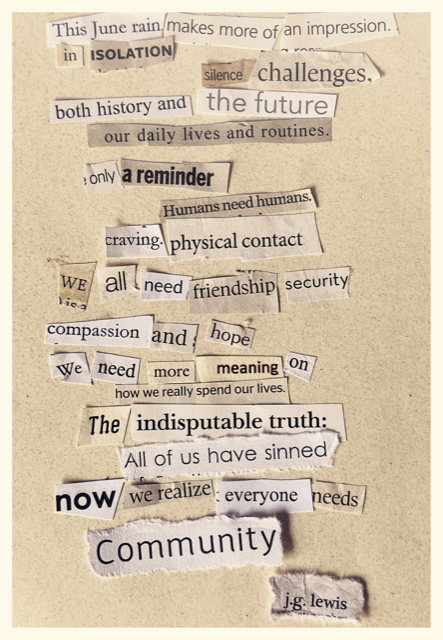 This June rain makes more of an impression.
in ISOLATION
silence challenges,
both history and the future
our daily lives and routines.
only a reminder
Humans need humans.
craving. physical contact
WE all need friendship security
compassion and hope
We need more meaning on
how we really spend our lives.
The indisputable truth:
All of us have sinned
now we realize everyone needs
Community
j.g. lewis